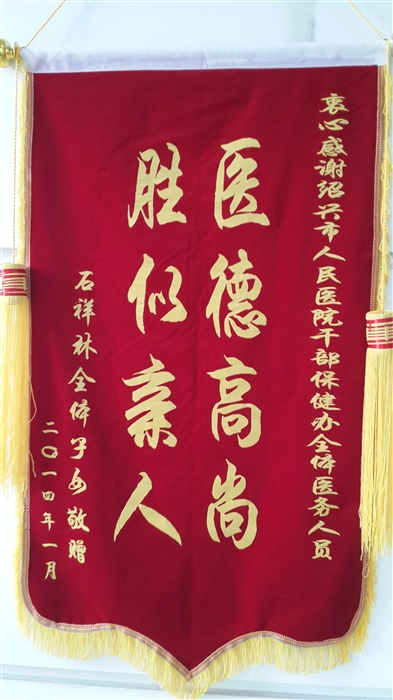 衷心感谢绍兴市人民医院干部保健办全体医务人员
医德高尚
胜似亲人
石祥林全体子女敬赠
二〇一四年一月